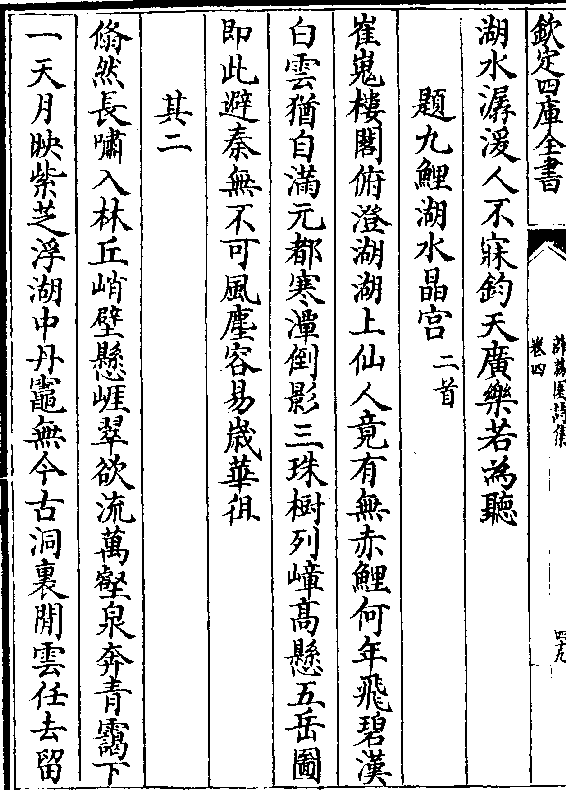 欽定四庫全書
卷四
湖水潺湲人不寐鈞天廣樂若為聽
題九鯉湖水晶宫二首
崔嵬樓閣俯澄湖湖上仙人竟有無赤鯉何年飛碧漢
白雲猶自滿元都寒潭倒影三珠樹列嶂髙懸五岳圖
即此避秦無不可風塵容易嵗華徂
其二
翛然長嘯入林丘峭壁懸崖翠欲流萬壑泉奔青靄下
一天月映紫芝浮湖中丹竈無今古洞裏閒雲任去留